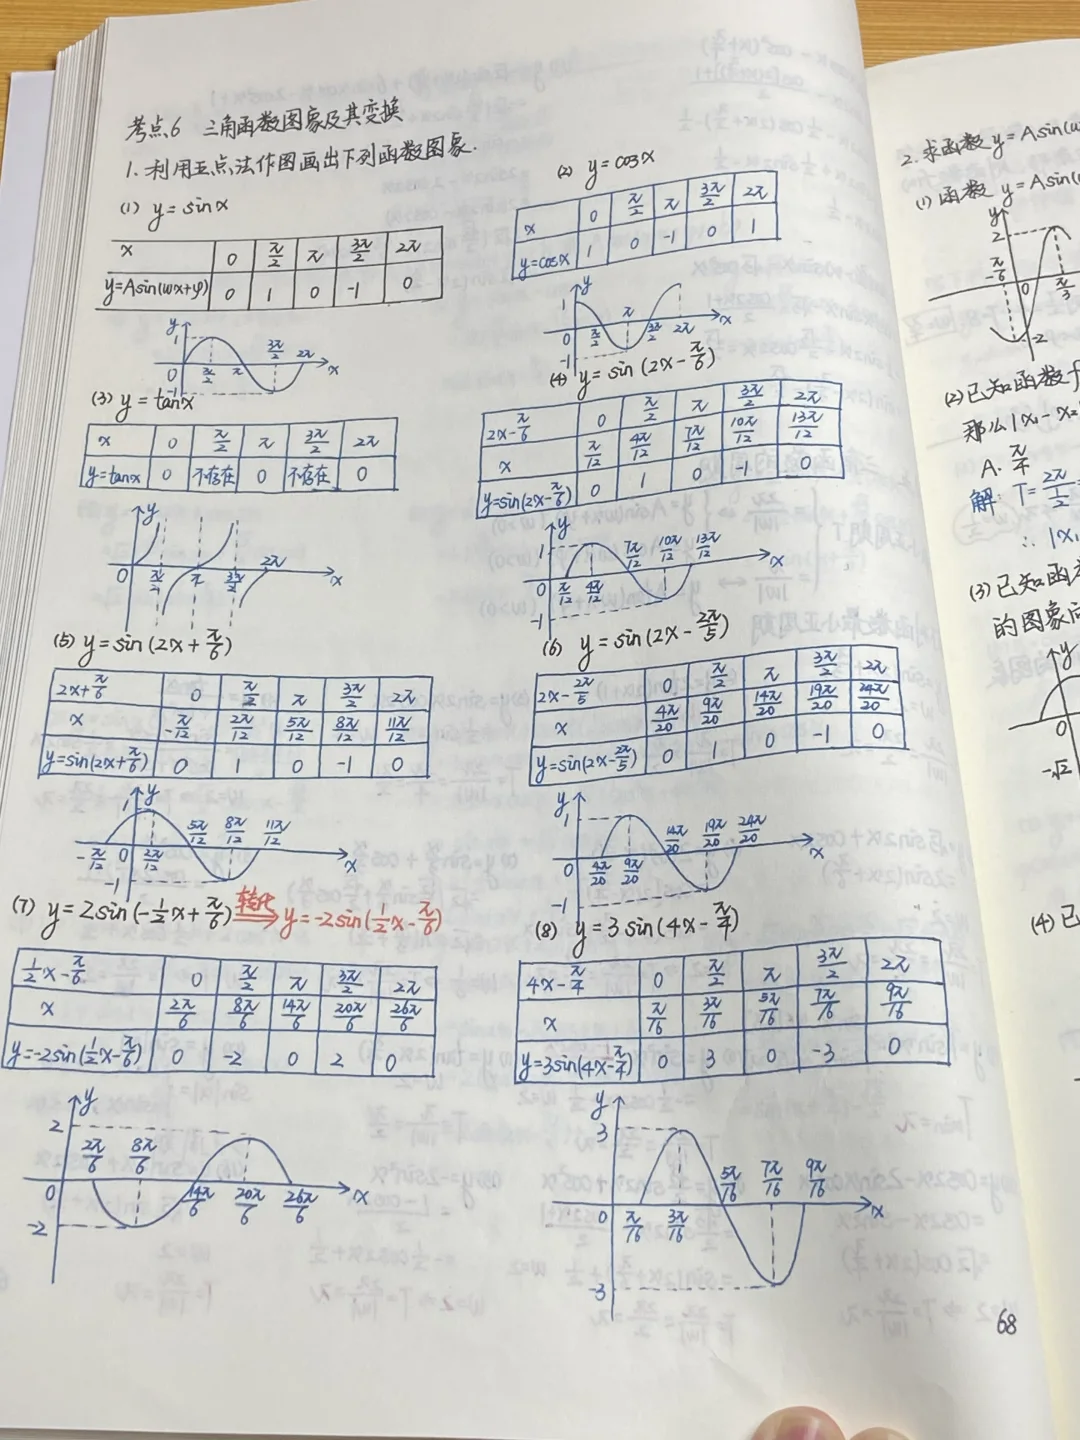 考点6 三角函数图象及其变换
1.利用五点法作图画出下列函数图象.
(1) y=sinx
x 0 π/2 π 3π/2 2π
y=Asin(wx+φ) 0 1 0 -1 0
y
1
0 π/2 π 3π/2 2π x
-1
(2) y=cosx
x 0 π/2 π 3π/2 2π
y=cosx 1 0 -1 0 1
y
1
0 π/2 π 3π/2 2π x
-1
(3) y=tanx
x 0 π/2 π 3π/2 2π
y=tanx 0 不存在 0 不存在 0
y
0 π/2 π 3π/2 2π x
(4) y=sin(2x-π/6)
2x-π/6 0 π/2 π 3π/2 2π
x π/12 4π/12 7π/12 10π/12 13π/12
y=sin(2x-π/6) 0 1 0 -1 0
y
1
0 π/12 4π/12 7π/12 10π/12 13π/12 x
-1
(5) y=sin(2x+π/6)
2x+π/6 0 π/2 π 3π/2 2π
x -π/12 2π/12 5π/12 8π/12 11π/12
y=sin(2x+π/6) 0 1 0 -1 0
y
1
-π/12 0 2π/12 5π/12 8π/12 11π/12 x
-1
(6) y=sin(2x-2π/5)
2x-2π/5 0 π/2 π 3π/2 2π
x 4π/20 9π/20 14π/20 19π/20 24π/20
y=sin(2x-2π/5) 0 1 0 -1 0
y
1
0 4π/20 9π/20 14π/20 19π/20 24π/20 x
-1
(7) y=2sin(-1/2x+π/6) 转化 y=-2sin(1/2x-π/6)
1/2x-π/6 0 π/2 π 3π/2 2π
x 2π/6 8π/6 14π/6 20π/6 26π/6
y=-2sin(1/2x-π/6) 0 -2 0 2 0
y
2
0 2π/6 8π/6 14π/6 20π/6 26π/6 x
-2
(8) y=3sin(4x-π/4)
4x-π/4 0 π/2 π 3π/2 2π
x π/16 3π/16 5π/16 7π/16 9π/16
y=3sin(4x-π/4) 0 3 0 -3 0
y
3
0 π/16 3π/16 5π/16 7π/16 9π/16 x
-3
68
2.求函数y=Asin(w
(1)函数 y=Asin(
y
2
-π/6 0 π/3
-2
(2)已知函数f
那么|x₁-x₂
A. π/4
解: T=2π/½=
∴ |x₁
(3)已知函
的图象向
y
0
-√2
(4)已